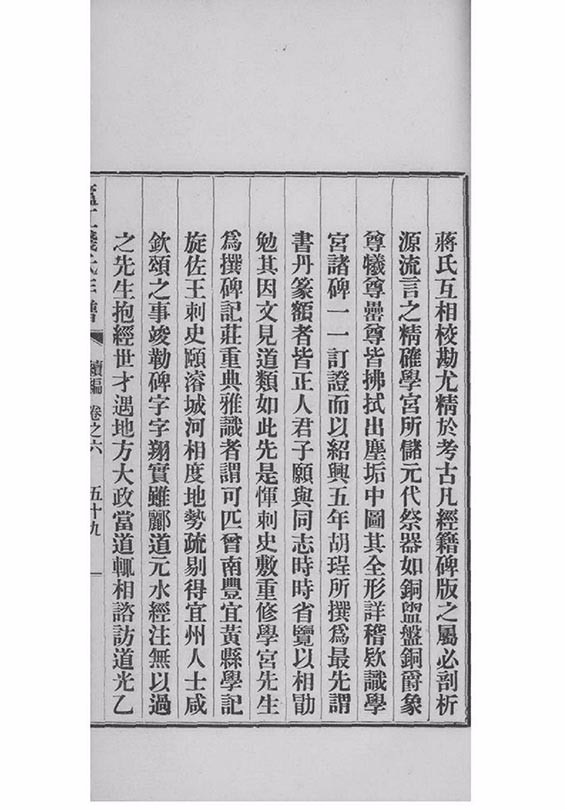 蔣氏互相校勘尤精於考古凡經籍碑版之屬必剖析
源流言之精確學宮所儲元代祭器如銅盥盤銅爵象
尊犧尊罍尊皆拂拭出塵垢中圖其全形詳稽欵識學
宮諸碑一一訂證而以紹興五年胡珵所撰爲最先謂
書丹篆額者皆正人君子願與同志時時省覽以相勖
勉其因文見道類如此先是惲刺史敷重修學宮先生
爲撰碑記莊重典雅識者謂可匹曾南豐宜黃縣學記
旋佐王刺史頤濬城河相度地勢疏剔得宜州人士咸
欽頌之事竣勒碑字字翔實雖酈道元水經注無以過
之先生抱經世才遇地方大政當道輒相諮訪道光乙
錢氏 續編 卷之六 五十九